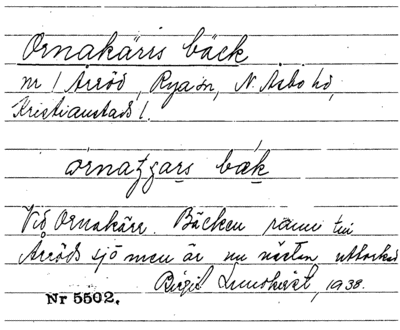 Ornakäris bäck
nr 1 Arröd, Rya sn, N. Åsbo hd,
Kristianstads l.
bæk
Vid Ornakärr. Bäcken rann till
Arröds sjö men är nu nästan uttorkad
Birgit Lundkvist, 1938.
Nr 5502.